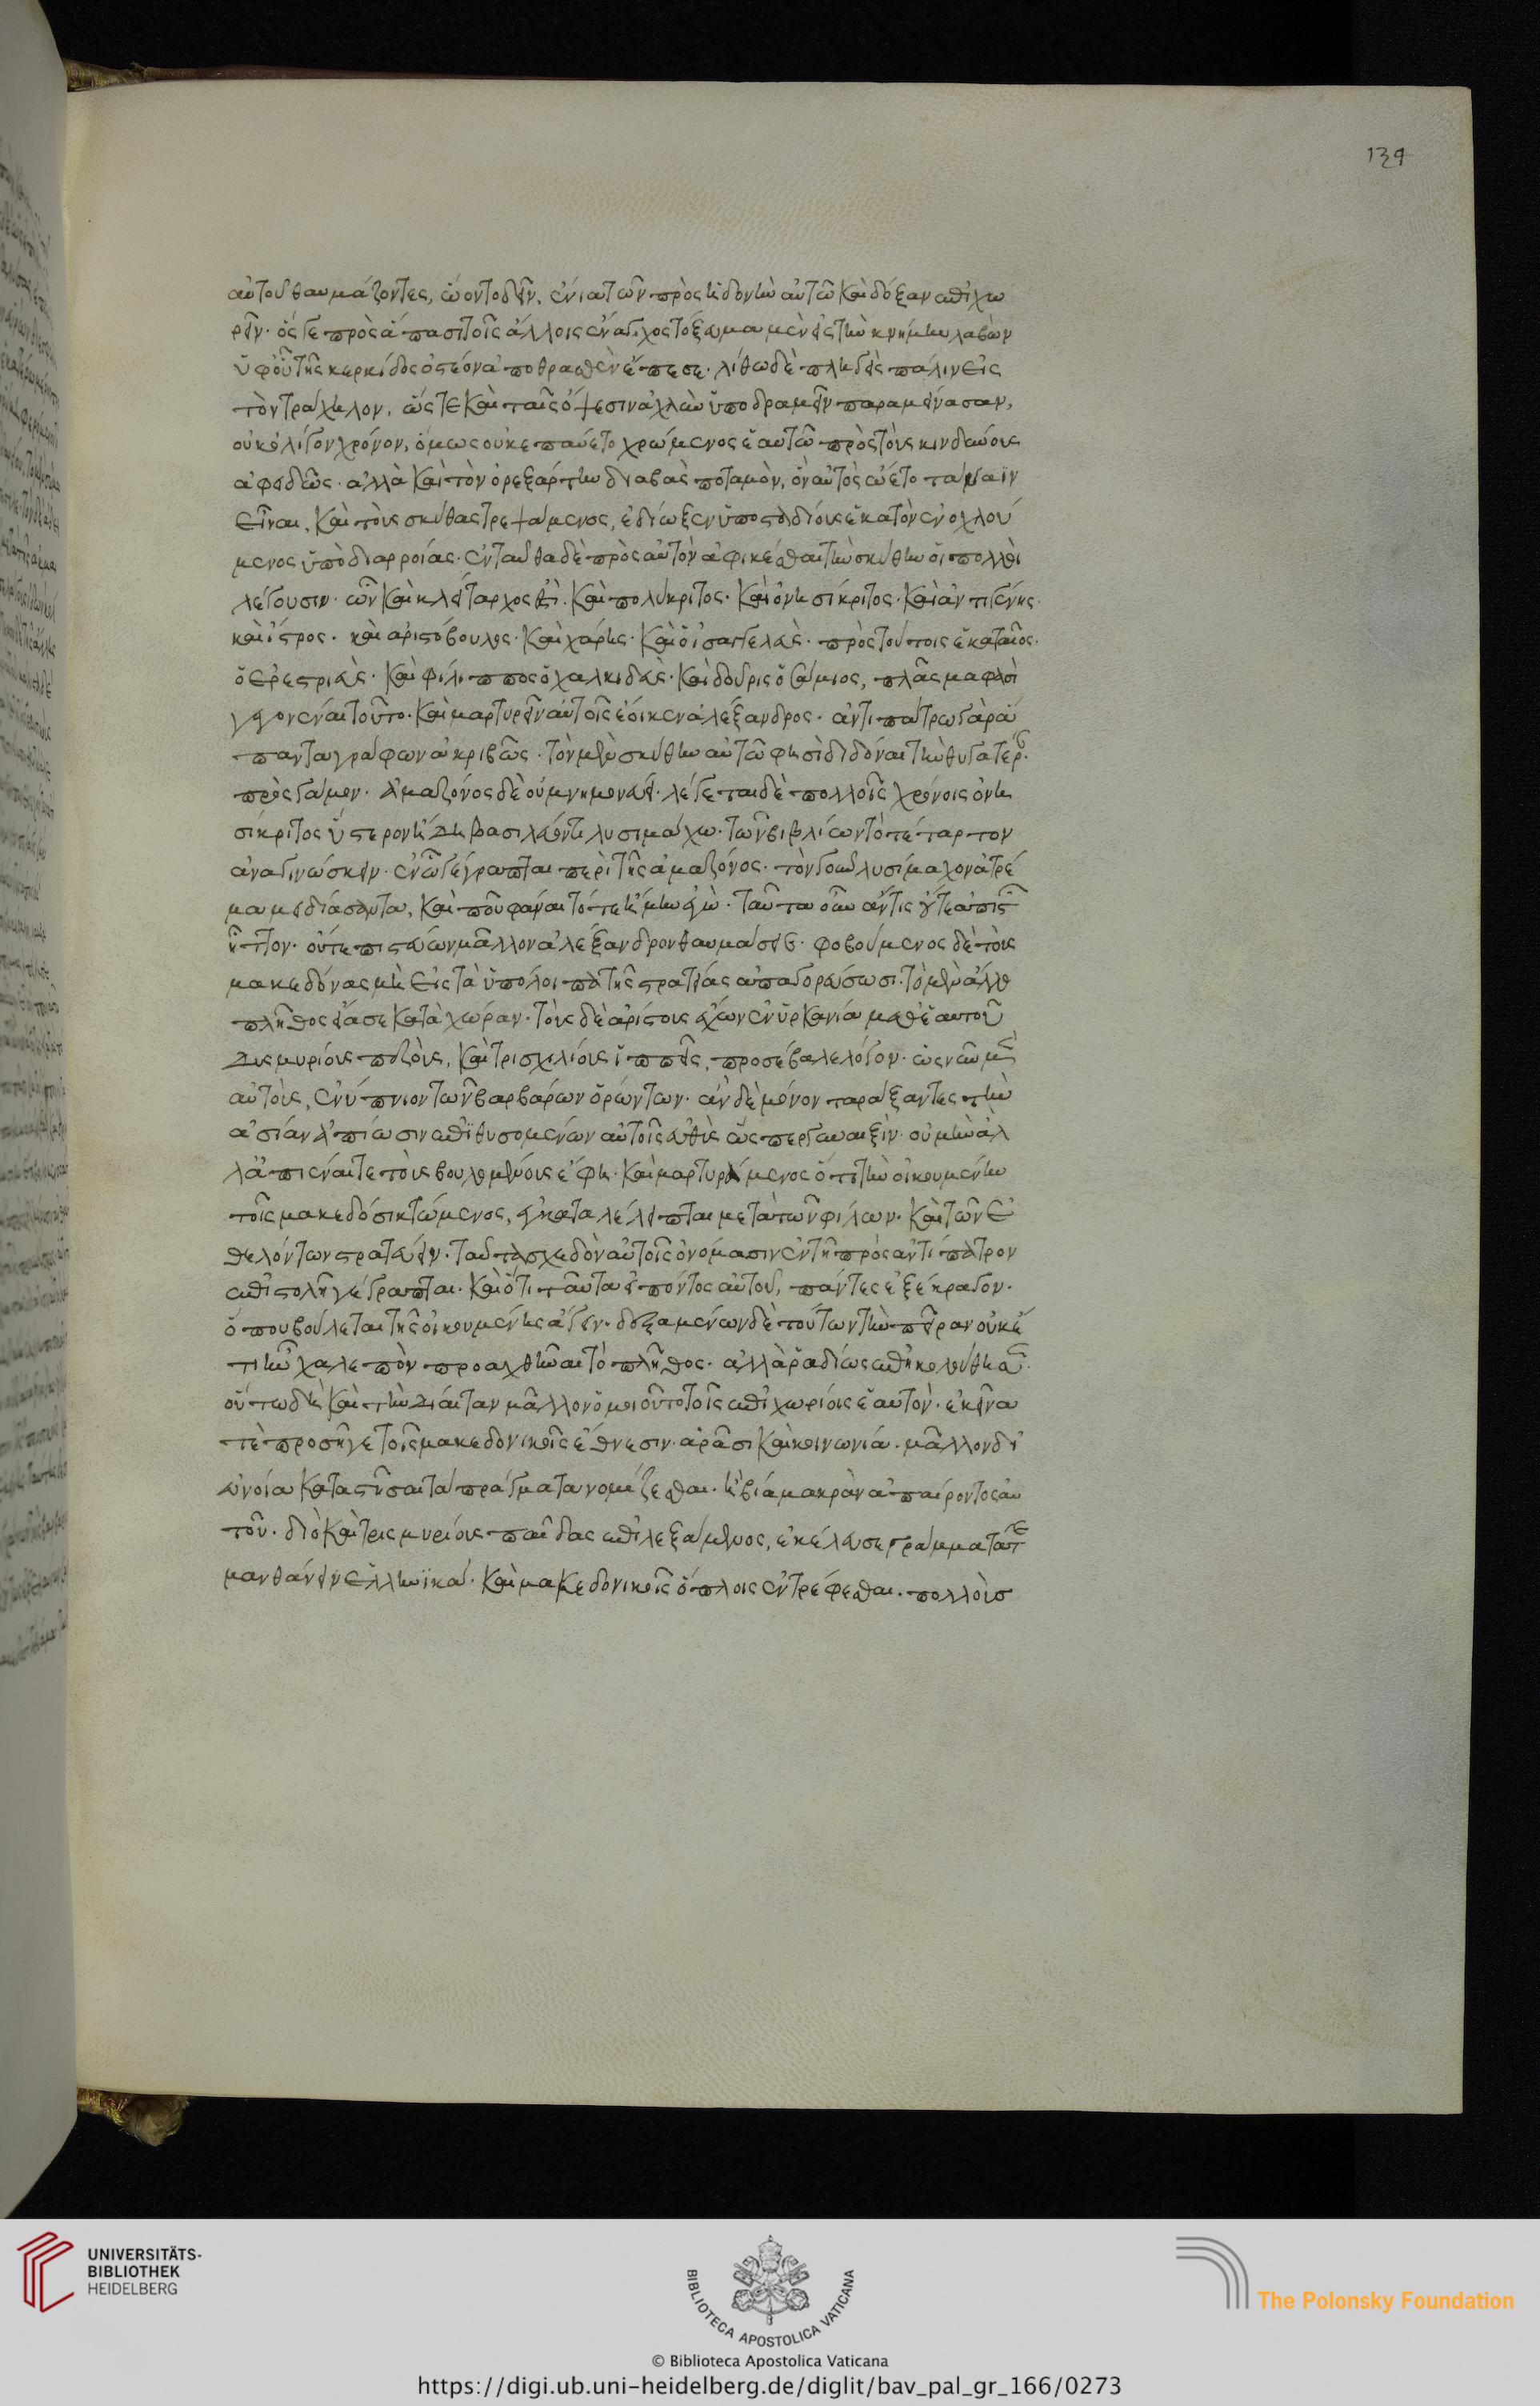 139
αὐτοῦ θαυμάζοντες, ὤοντο δεῖν, ἔνια τῶν πρὸς ἡδονὴν αὐτῶ καὶ δόξαν ἐπιχω
ρεῖν. ὅς γε πρὸς ἅπασι τοῖς ἄλλοις ἔναγχος τόξευμα μὲν εἰς τὴν κνήμην λαβὼν
ὑφ' οὗ τῆς κερκίδος ὀστέον ἀποθραυσθὲν ἔπεσε. λίθω δὲ πληγεὶς πάλιν εἰς
τὸν τράχηλον, ὥστε καὶ ταῖς ὄψεσιν ἀχλὺν ὑποδραμεῖν παραμείνασαν,
οὐκ ὀλίγον χρόνον, ὅμως οὐκ ἐπαύετο χρώμενος ἑαυτῶ πρὸς τοὺς κινδύνους
ἀφειδῶς. ἀλλὰ καὶ τὸν ὀρεξάρτην διαβὰς ποταμὸν, ὃν αὐτὸς ὤετο τάναϊν
εἶναι, καὶ τοὺς σκύθας τρεψάμενος, ἐδίωξεν ὑπὸ σταδίους ἑκατὸν ἐνοχλού
μενος ὑπὸ διαρροίας. ἐνταῦθα δὲ πρὸς αὐτὸν ἀφικέσθαι τὴν σκύθην οἱ πολλοὶ
λέγουσιν. ὧν καὶ κλείταρχός ἐστι. καὶ πολύκριτος. καὶ ὀνησίκριτος. καὶ ἀντιγένης.
καὶ ἴστρος. καὶ ἀριστόβουλος. καὶ χάρης. καὶ ὁ εἰσαγγελεὺς. πρὸς τούτοις ἑκαταῖος.
ὁ ἐρετριεὺς. καὶ φίλιππος ὁ χαλκιδεὺς. καὶ δοῦρις ὁ σάμιος, πλάσμα φασὶ
γεγονέναι τοῦτο. καὶ μαρτυρεῖν αὐτοῖς ἔοικεν ἀλέξανδρος. ἀντιπάτρω γὰρ ἅ
παντα γράφων ἀκριβῶς. τὸν μὲν σκύθην αὐτῶ φησὶ διδόναι τὴν θυγατέρ.
πρὸς γάμον. ἀμαζόνος δὲ οὐ μνημονεύει. λέγεται δὲ πολλοῖς χρόνοις ὀνη
σίκριτος ὕστερον ἤδη βασιλεύοντι λυσιμάχω. τῶν βιβλίων τὸ τέταρτον
ἀναγινώσκειν. ἐν ὧ γέγραπται περὶ τῆς ἀμαζόνος. τὸν γοῦν λυσίμαχον ἀτρέ
μα μειδιάσαντα, καὶ ποῦ φάναι τότε ἤμην ἐγὼ. ταῦτα οὖν ἄν τις οὔτε ἀπιστ
ἧττον. οὔτε πιστεύων μᾶλλον ἀλέξανδρον θαυμάσειε. φοβούμενος δὲ τοὺς
μακεδόνας μὴ εἰς τὰ ὑπόλοιπα τῆς στρατείας ἀπαγορεύσωσι. τὸ μὲν ἄλλο
πλῆθος εἴασε κατὰ χώραν. τοὺς δὲ ἀρίστους ἔχων ἐν ὑρκανία μεθ' ἑαυτοῦ
δισμυρίους πεζοὺς, καὶ τρισχιλίους ἱππεῖς, προσέβαλε λόγον. ὡς νῦν μὲν
αὐτοὺς, ἐνύπνιον τῶν βαρβάρων ὁρώντων. ἂν δὲ μόνον ταράξαντες τὴν
ἀσίαν ἀπίωσιν ἐπιθυσομένων αὐτοῖς εὐθὺς ὥσπερ γυναιξὶν. οὐ μὴν ἀλ
λ' ἀπιέναι γε τοὺς βουλομένους ἔφη. καὶ μαρτυρόμενος ὅτι τὴν οἰκουμένην
τοῖς μακεδόσι κτώμενος, ἐγκαταλέλειπται μετὰ τῶν φίλων. καὶ τῶν ἐ
θελόντων στρατεύειν. ταῦτα σχεδὸν αὐτοῖς ὀνόμασιν ἐν τῆ πρὸς ἀντίπατρον
ἐπιστολῆ γέγραπται. καὶ ὅτι ταῦτα εἰπόντος αὐτοῦ, πάντες ἐξέκραγον.
ὅπου βούλεται τῆς οἰκουμένης ἄγειν. δεξαμένων δὲ τούτων τὴν πεῖραν οὐκέ
τι ἦν χαλεπὸν προαχθῆναι τὸ πλῆθος. ἀλλὰ ῥαδίως ἐπηκολούθησ.
οὕτω δὴ καὶ τὴν δίαιταν μᾶλλον ὁμοιοῦτο τοῖς ἐπιχωρίοις ἑαυτὸν. ἐκεῖνα
τὲ προσῆγε τοῖς μακεδονικοῖς ἔθνεσιν. ἀράσι καὶ κοινωνία. μᾶλλον δι'
εὐνοίας καταστήσαι τὰ πράγματα νομίζεσθαι. ἢ βία μακρὰν ἀπαίροντος αὐ
τοῦ. διὸ καὶ τρισμυρίους παῖδας ἐπιλεξάμενος, ἐκέλευσε γράμματά τε
μανθάνειν ἑλληνικά. καὶ μακεδονικοῖς ὅπλοις ἐντρέφεσθαι. πολλοὺς
UNIVERSITÄTS-
BIBLIOTHEK
HEIDELBERG
BIBLIOTECA APOSTOLICA VATICANA
The Polonsky Foundation
© Biblioteca Apostolica Vaticana
https://digi.ub.uni-heidelberg.de/diglit/bav_pal_gr_166/0273